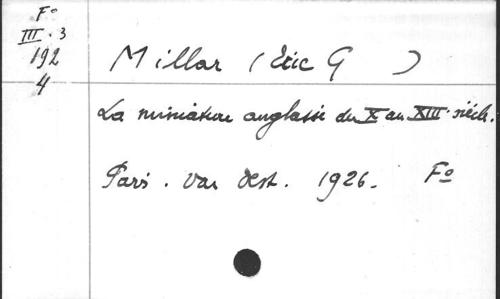 Fo
III. 3
192
4
Millar (Eric G )
La miniature anglaise du X au XIII siècle.
Paris. Van Oest. 1926. Fo